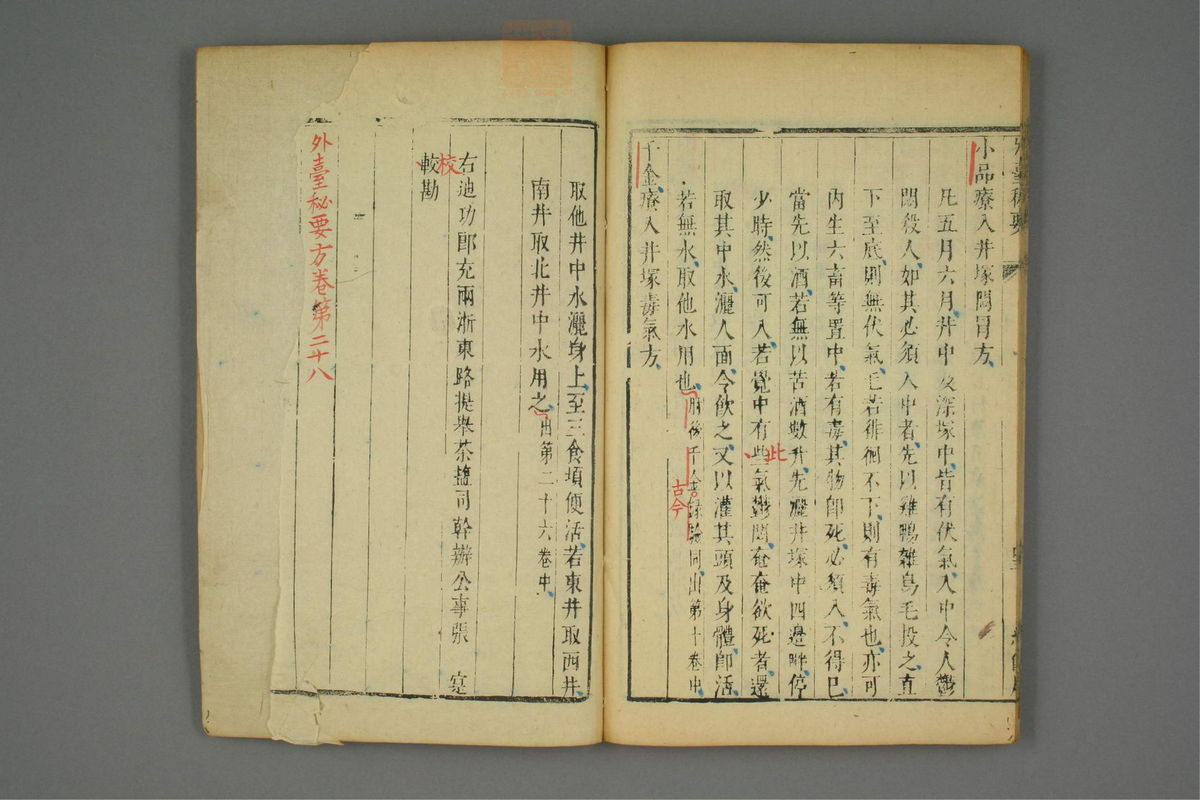 小品療入井塚悶冒方
凡五月六月井中及深塚中皆有伏氣入中令人鬱
悶殺人如其必須入中者先以雞鴨雜鳥毛投之直
下至底則無伏氣毛若徘徊不下則有毒氣也亦可
内生六畜等置中若有毒其物即死必須入不得已
當先以酒若無以苦酒數升先灑井塚中四邊畔停
少時然後可入若覺中有些氣鬱悶奄奄欲死者還
此
取其中水灑人面令飲之又以灌其頭及身體即活
若無水取他水用也肘後千金錄驗同出第十卷中
古今
千金療入井塚毒氣方
取他井中水灑身上至三食頃便活若東井取西井
南井取北井中水用之出第二十六卷中
右迪功郎充兩浙東路提舉茶鹽司幹辦公事張寔
校
較勘
外臺秘要方卷第二十八